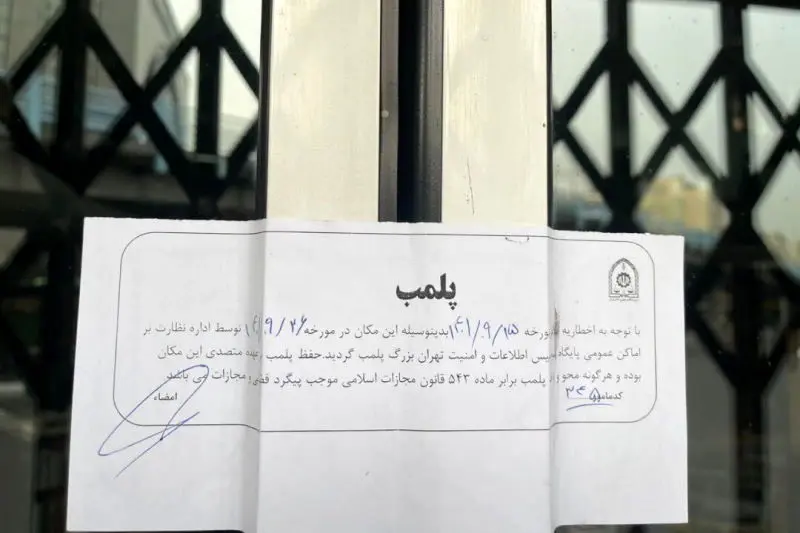 پلمب
با توجه به اخطاریه مورخه ۱۴۰۱/۹/۱۵ بدینوسیله این مکان در مورخه ۱۴۰۱/۹/۲۶ توسط اداره نظارت بر
اماکن عمومی پایگاه پلیس اطلاعات و امنیت تهران بزرگ پلمب گردید.حفظ پلمب بعهده متصدی این مکان
بوده و هرگونه محو پلمب برابر ماده ۵۴۳ قانون مجازات اسلامی موجب پیگرد قضی و مجازات می باشد
کدمامور
امضاء